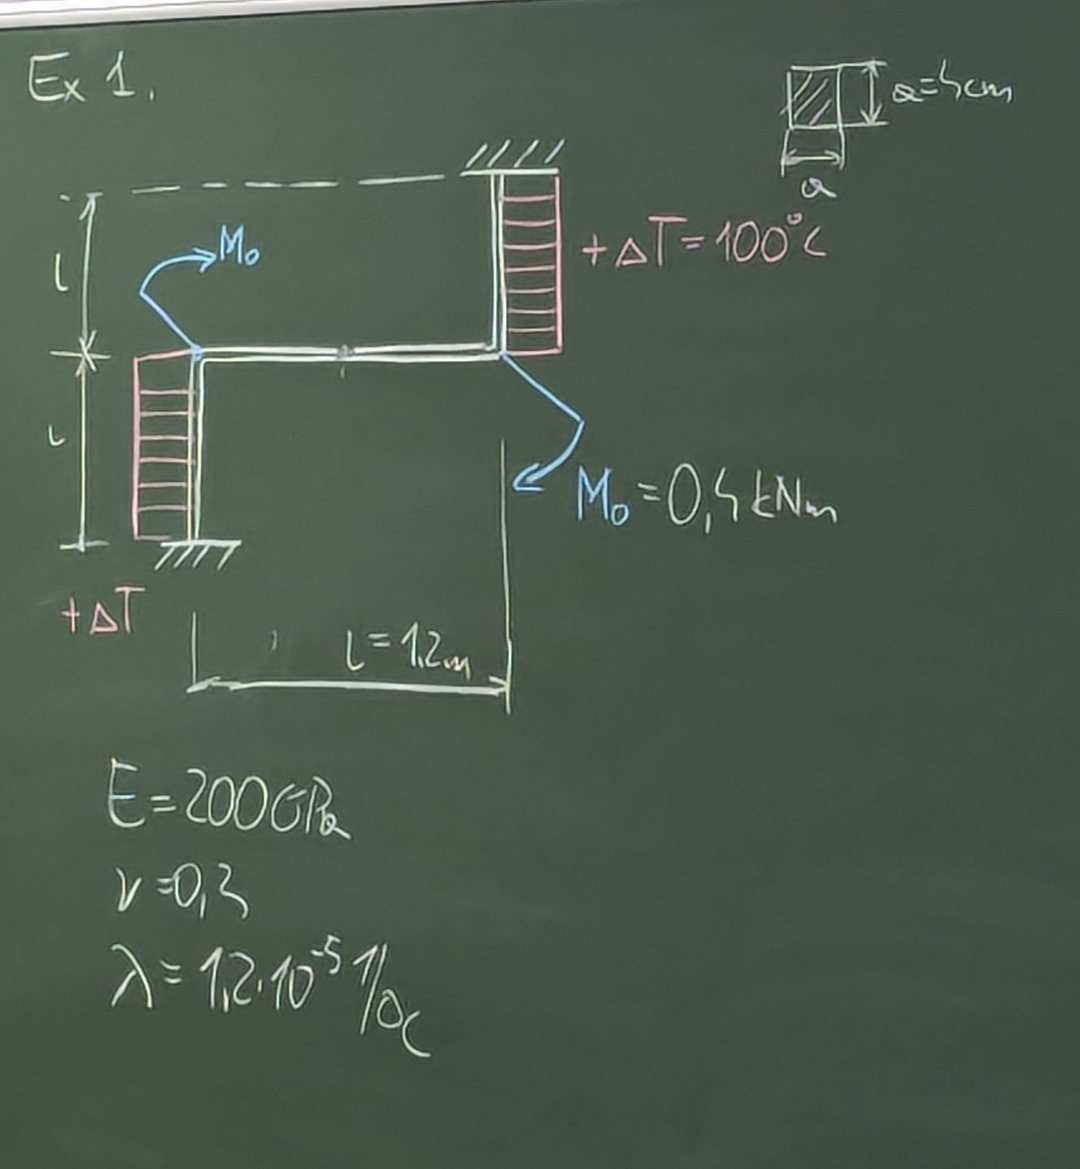 Ex 1.
a=4cm
a
l
M₀
+ΔT=100°C
l
M₀=0,4kNm
+ΔT
l=1,2m
E=200GPa
ν=0,3
λ=1,2·10⁻⁵ 1/°C